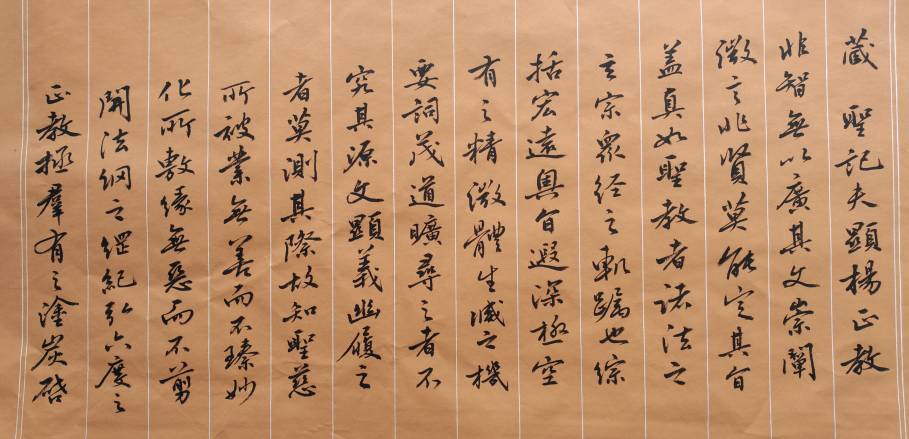 藏 聖記夫顯楊正教
非智無以廣其文崇闡
微言非賢莫能定其旨
蓋真如聖教者諸法之
玄宗眾經之軌躅也綜
括宏遠奧旨遐深極空
有之精微體生滅之機
要詞茂道曠尋之者不
究其源文顯義幽履之
者莫測其際故知聖慈
所被業無善而不臻妙
化所敷緣無惡而不剪
開法網之綱紀弘六度之
正教拯群有之塗炭啓